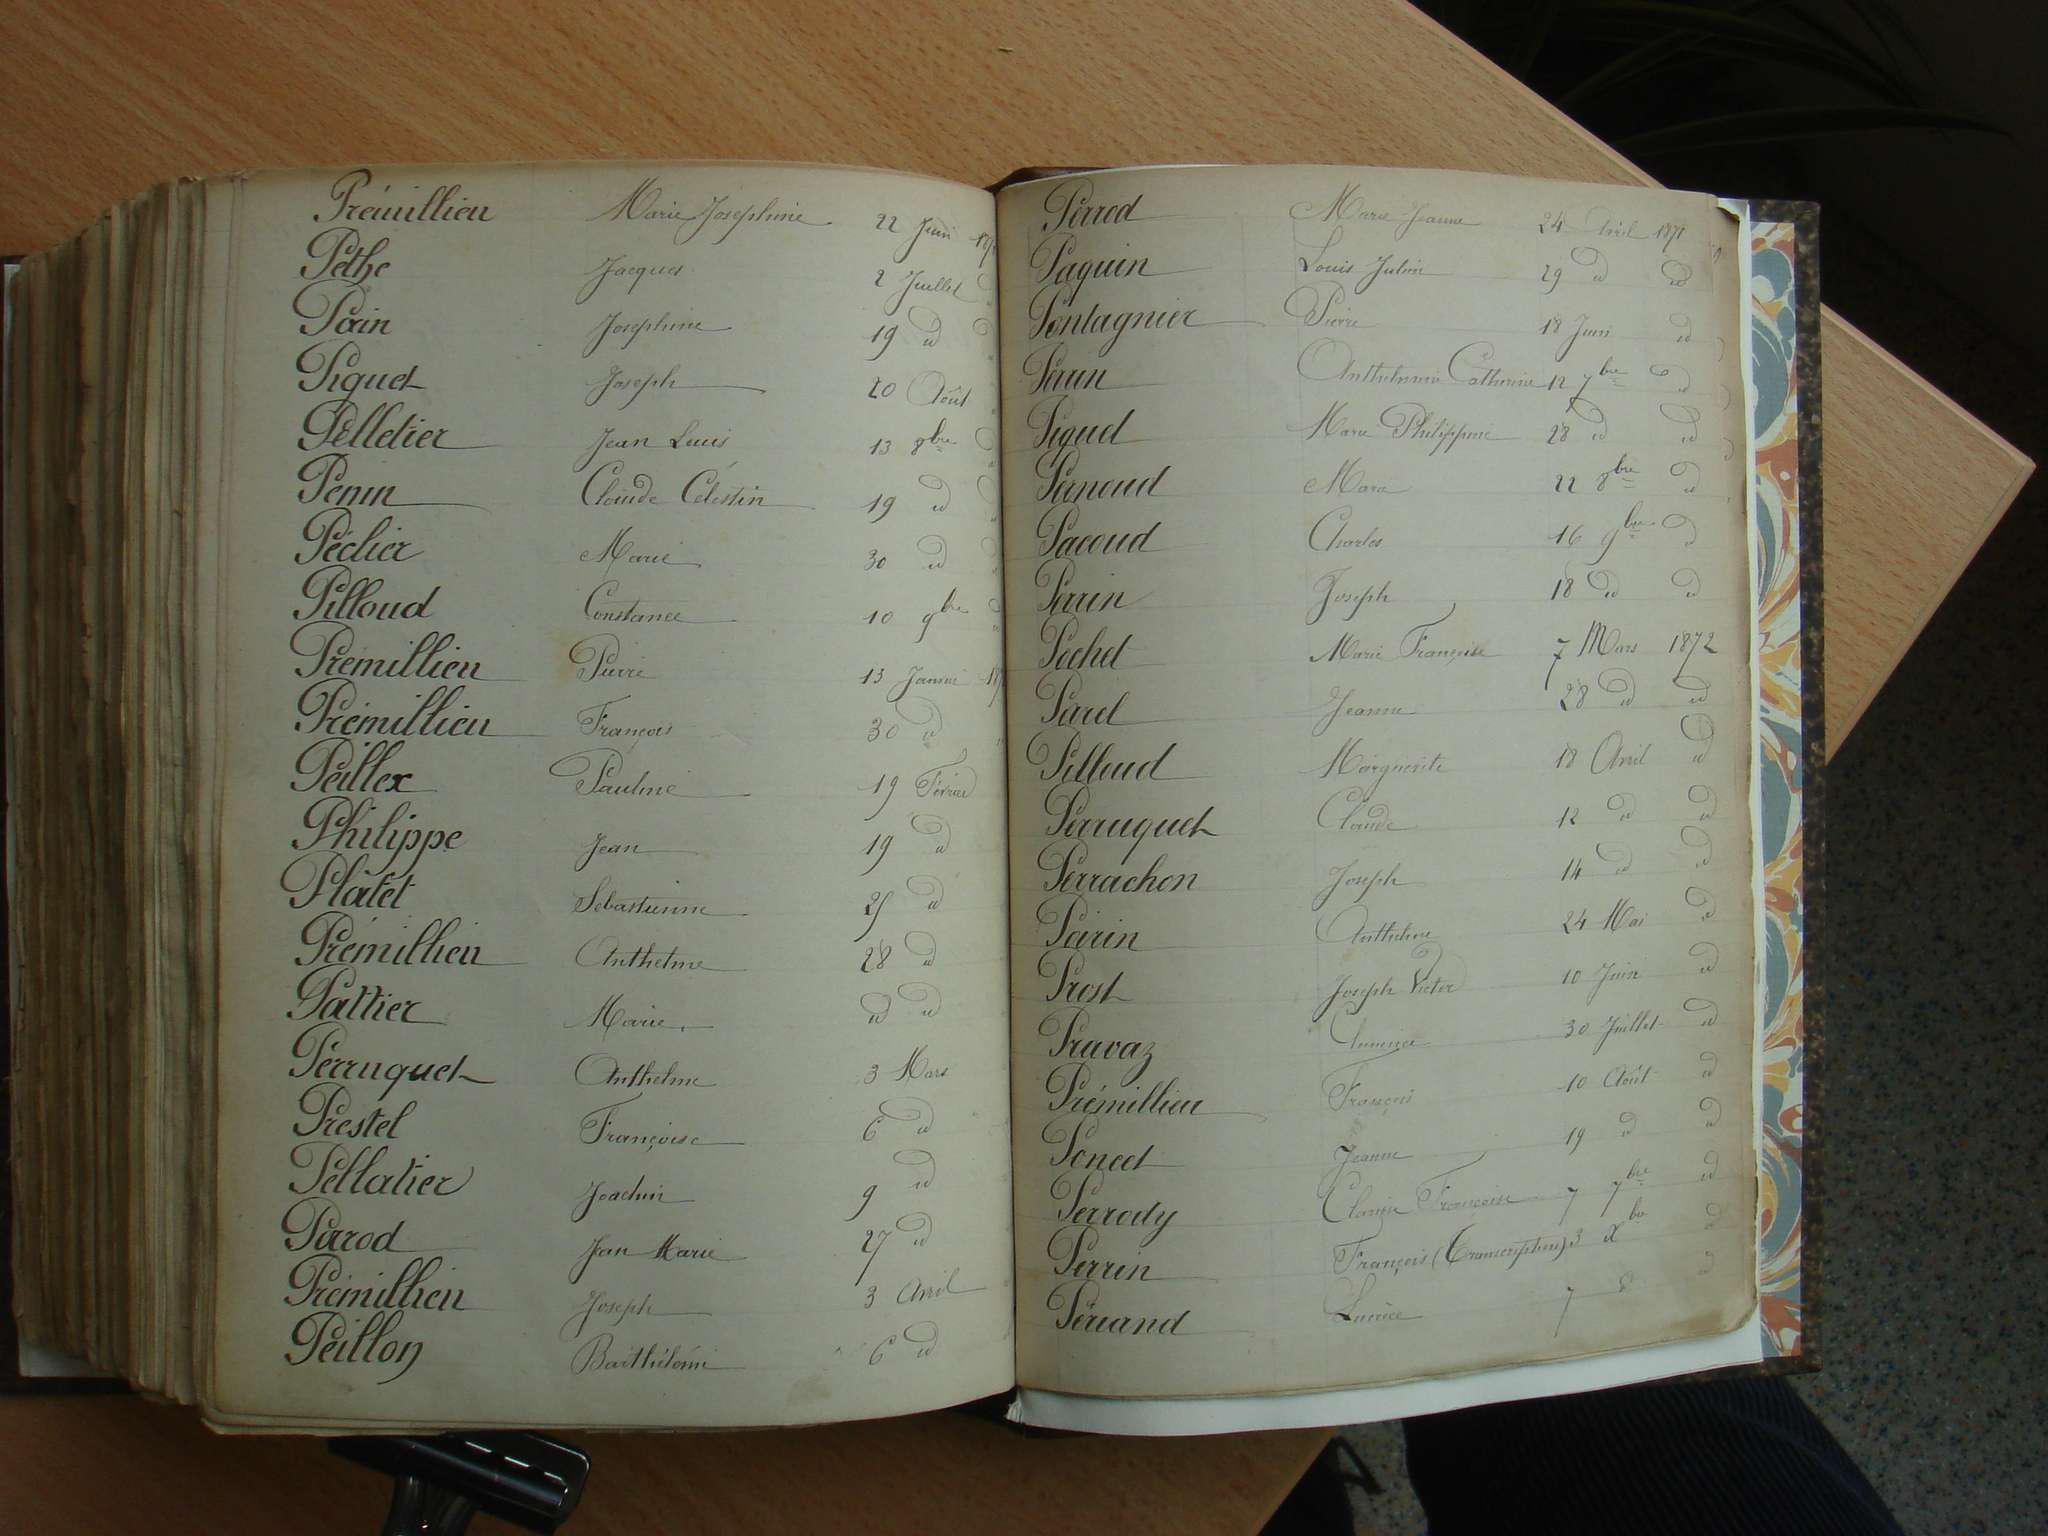 Prémillieu Marie Joséphine 22 Juin
Péthe Jacques 2 Juillet
Pain Joséphine 19 d
Piquet Joseph 20 Août
Pelletier Jean Louis 13 8bre
Penin Claude Célestin 19 d
Péclier Marie 30 d
Pilloud Constance 10 9bre
Prémillieu Pierre 13 Janvier
Prémillieu François 30 d
Peillex Pauline 19 Février
Philippe Jean 19 d
Platet Sébastienne 25 d
Prémillieu Anthelme 28 d
Pattier Marie d d
Perruquet Anthelme 3 Mars
Prestel Françoise 6 d
Pellatier Joachim 9 d
Parod Jean Marie 27 d
Prémillieu Joseph 3 Avril
Peillon Barthélémi 6 d
Perrod Marie Jeanne 24 Avril 1871
Paquin Louis Julien 29 d d
Pontagnier Pierre 18 Juin d
Anthelmie Catherine 12 7bre d
Piquet Marie Philippine 28 d d
Pernoud 22 8bre d
Pacoud Charles 16 9bre d
Perrin Joseph 18 d d
Pochet Marie Françoise 7 Mars 1872
Parel Jeanne 28 d d
Pilloud Marguerite 18 Avril d
Perruquet Claude 12 d d
Perrachon Joseph 14 d d
Parin Anthelme 24 Mai d
Prost Joseph Victor 10 Juin d
Pravaz 30 Juillet d
Prémillieu François 10 Août d
Poncet Jeanne 19 d d
Perrody Françoise 7 7bre d
Perrin François (Transcription) 3 Xbre d
Périand Lucrèce 7 d